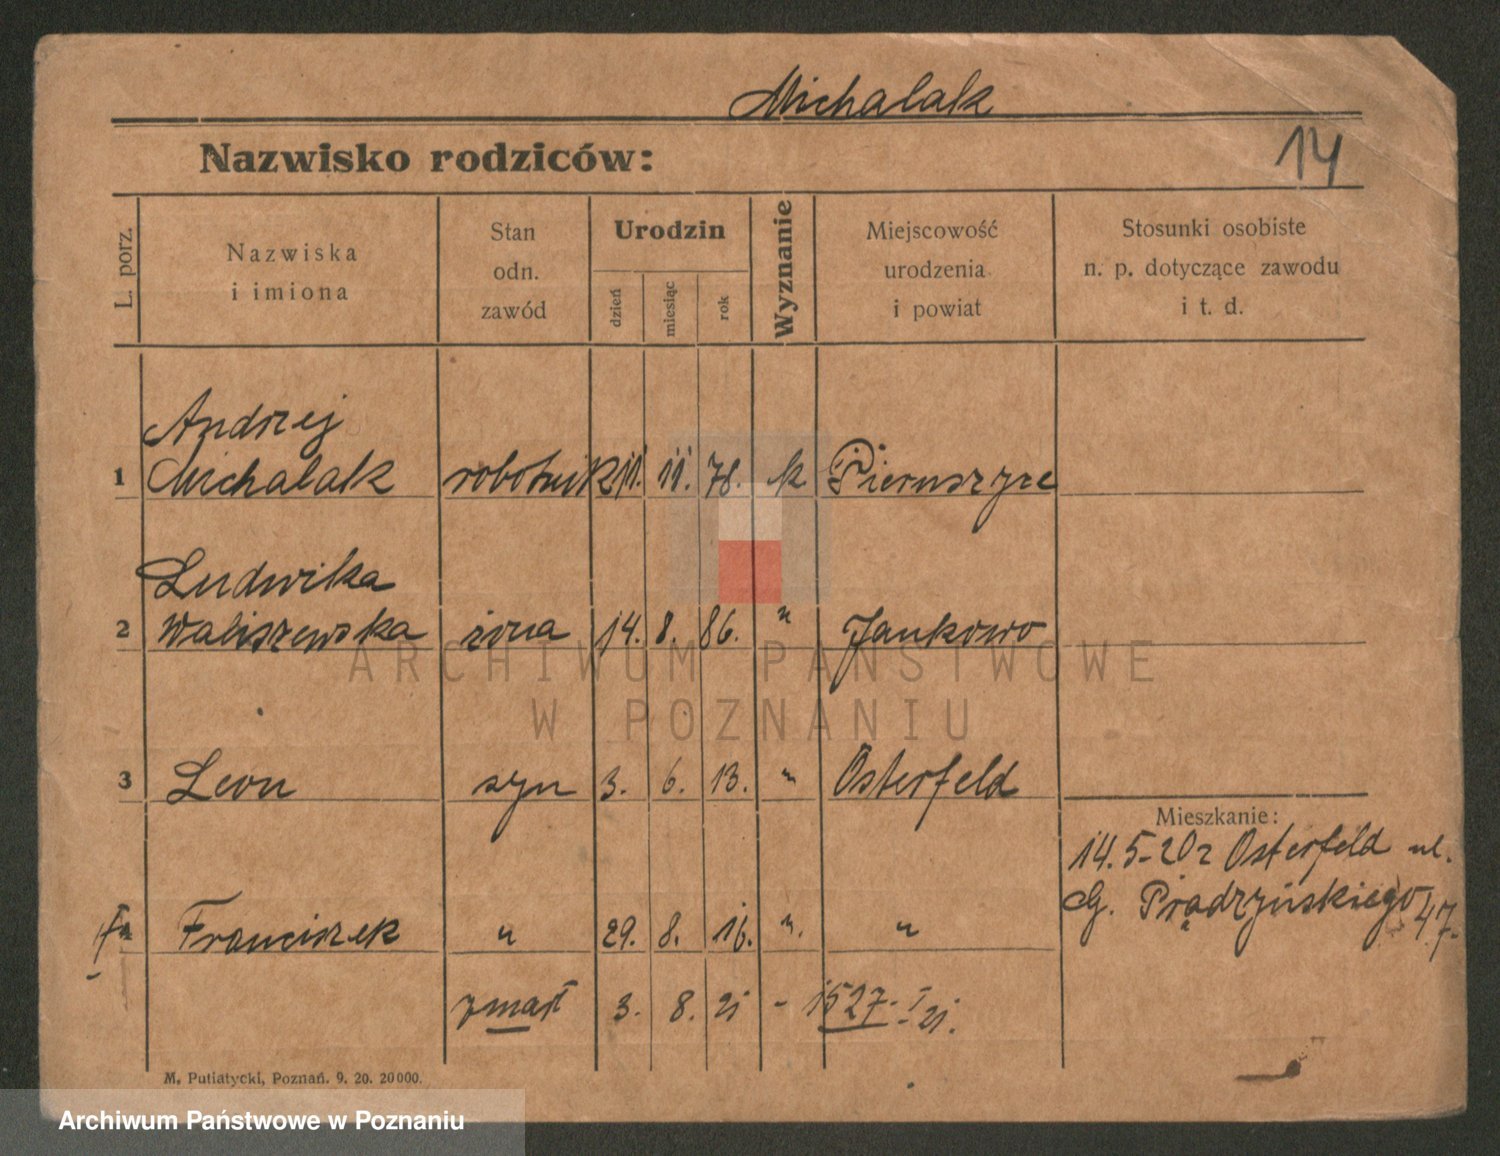 Michalak
Nazwisko rodziców:
14
L. porz.
Nazwiska
i imiona
Stan
odn.
zawód
Urodzin
dzień
miesiąc
rok
Wyznanie
Miejscowość
urodzenia
i powiat
Stosunki osobiste
n. p. dotyczące zawodu
i t. d.
Andrzej
1 Michalak robotnik 11. 11. 78. k Pieruszyce
Ludwika
2 Waliszewska żona 14. 8. 86. " Jankowo
3 Leon syn 3. 6. 13. " Osterfeld
Mieszkanie:
14.5-20 z Osterfeld ul.
G. Prądzyńskiego 47.
4 Franciszek " 29. 8. 16. " "
zmarł 3. 8. 21 - 1527. I 21.
M. Putiatycki, Poznań. 9. 20. 20000.
ARCHIWUM PAŃSTWOWE
W POZNANIU
Archiwum Państwowe w Poznaniu